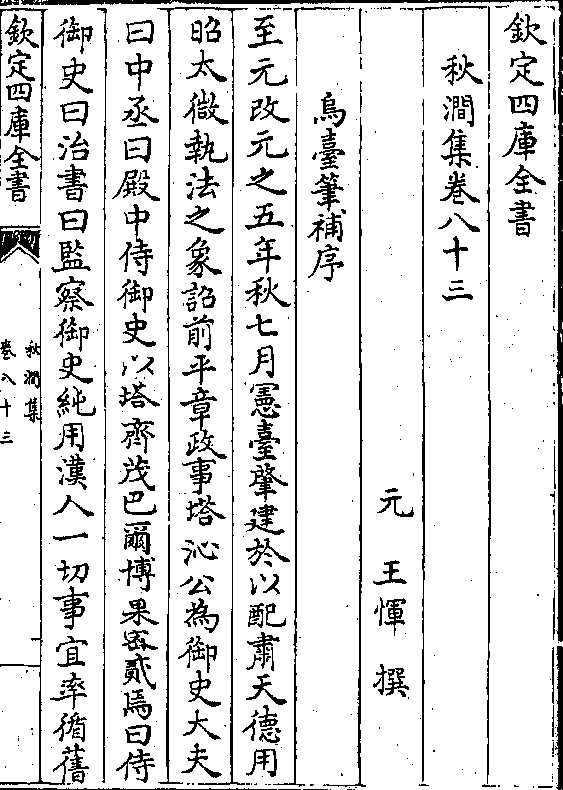 欽定四庫全書
秋澗集卷八十三
元 王惲 撰
烏臺筆補序
至元改元之五年秋七月憲臺肇建於以配肅天德用
昭太微執法之象詔前平章政事塔沁公為御史大夫
曰中丞曰殿中侍御史以塔齊茂巴爾博果密貳焉曰侍
御史曰治書曰監察御史純用漢人一切事宜率循舊
欽定四庫全書
秋澗集
卷八十三